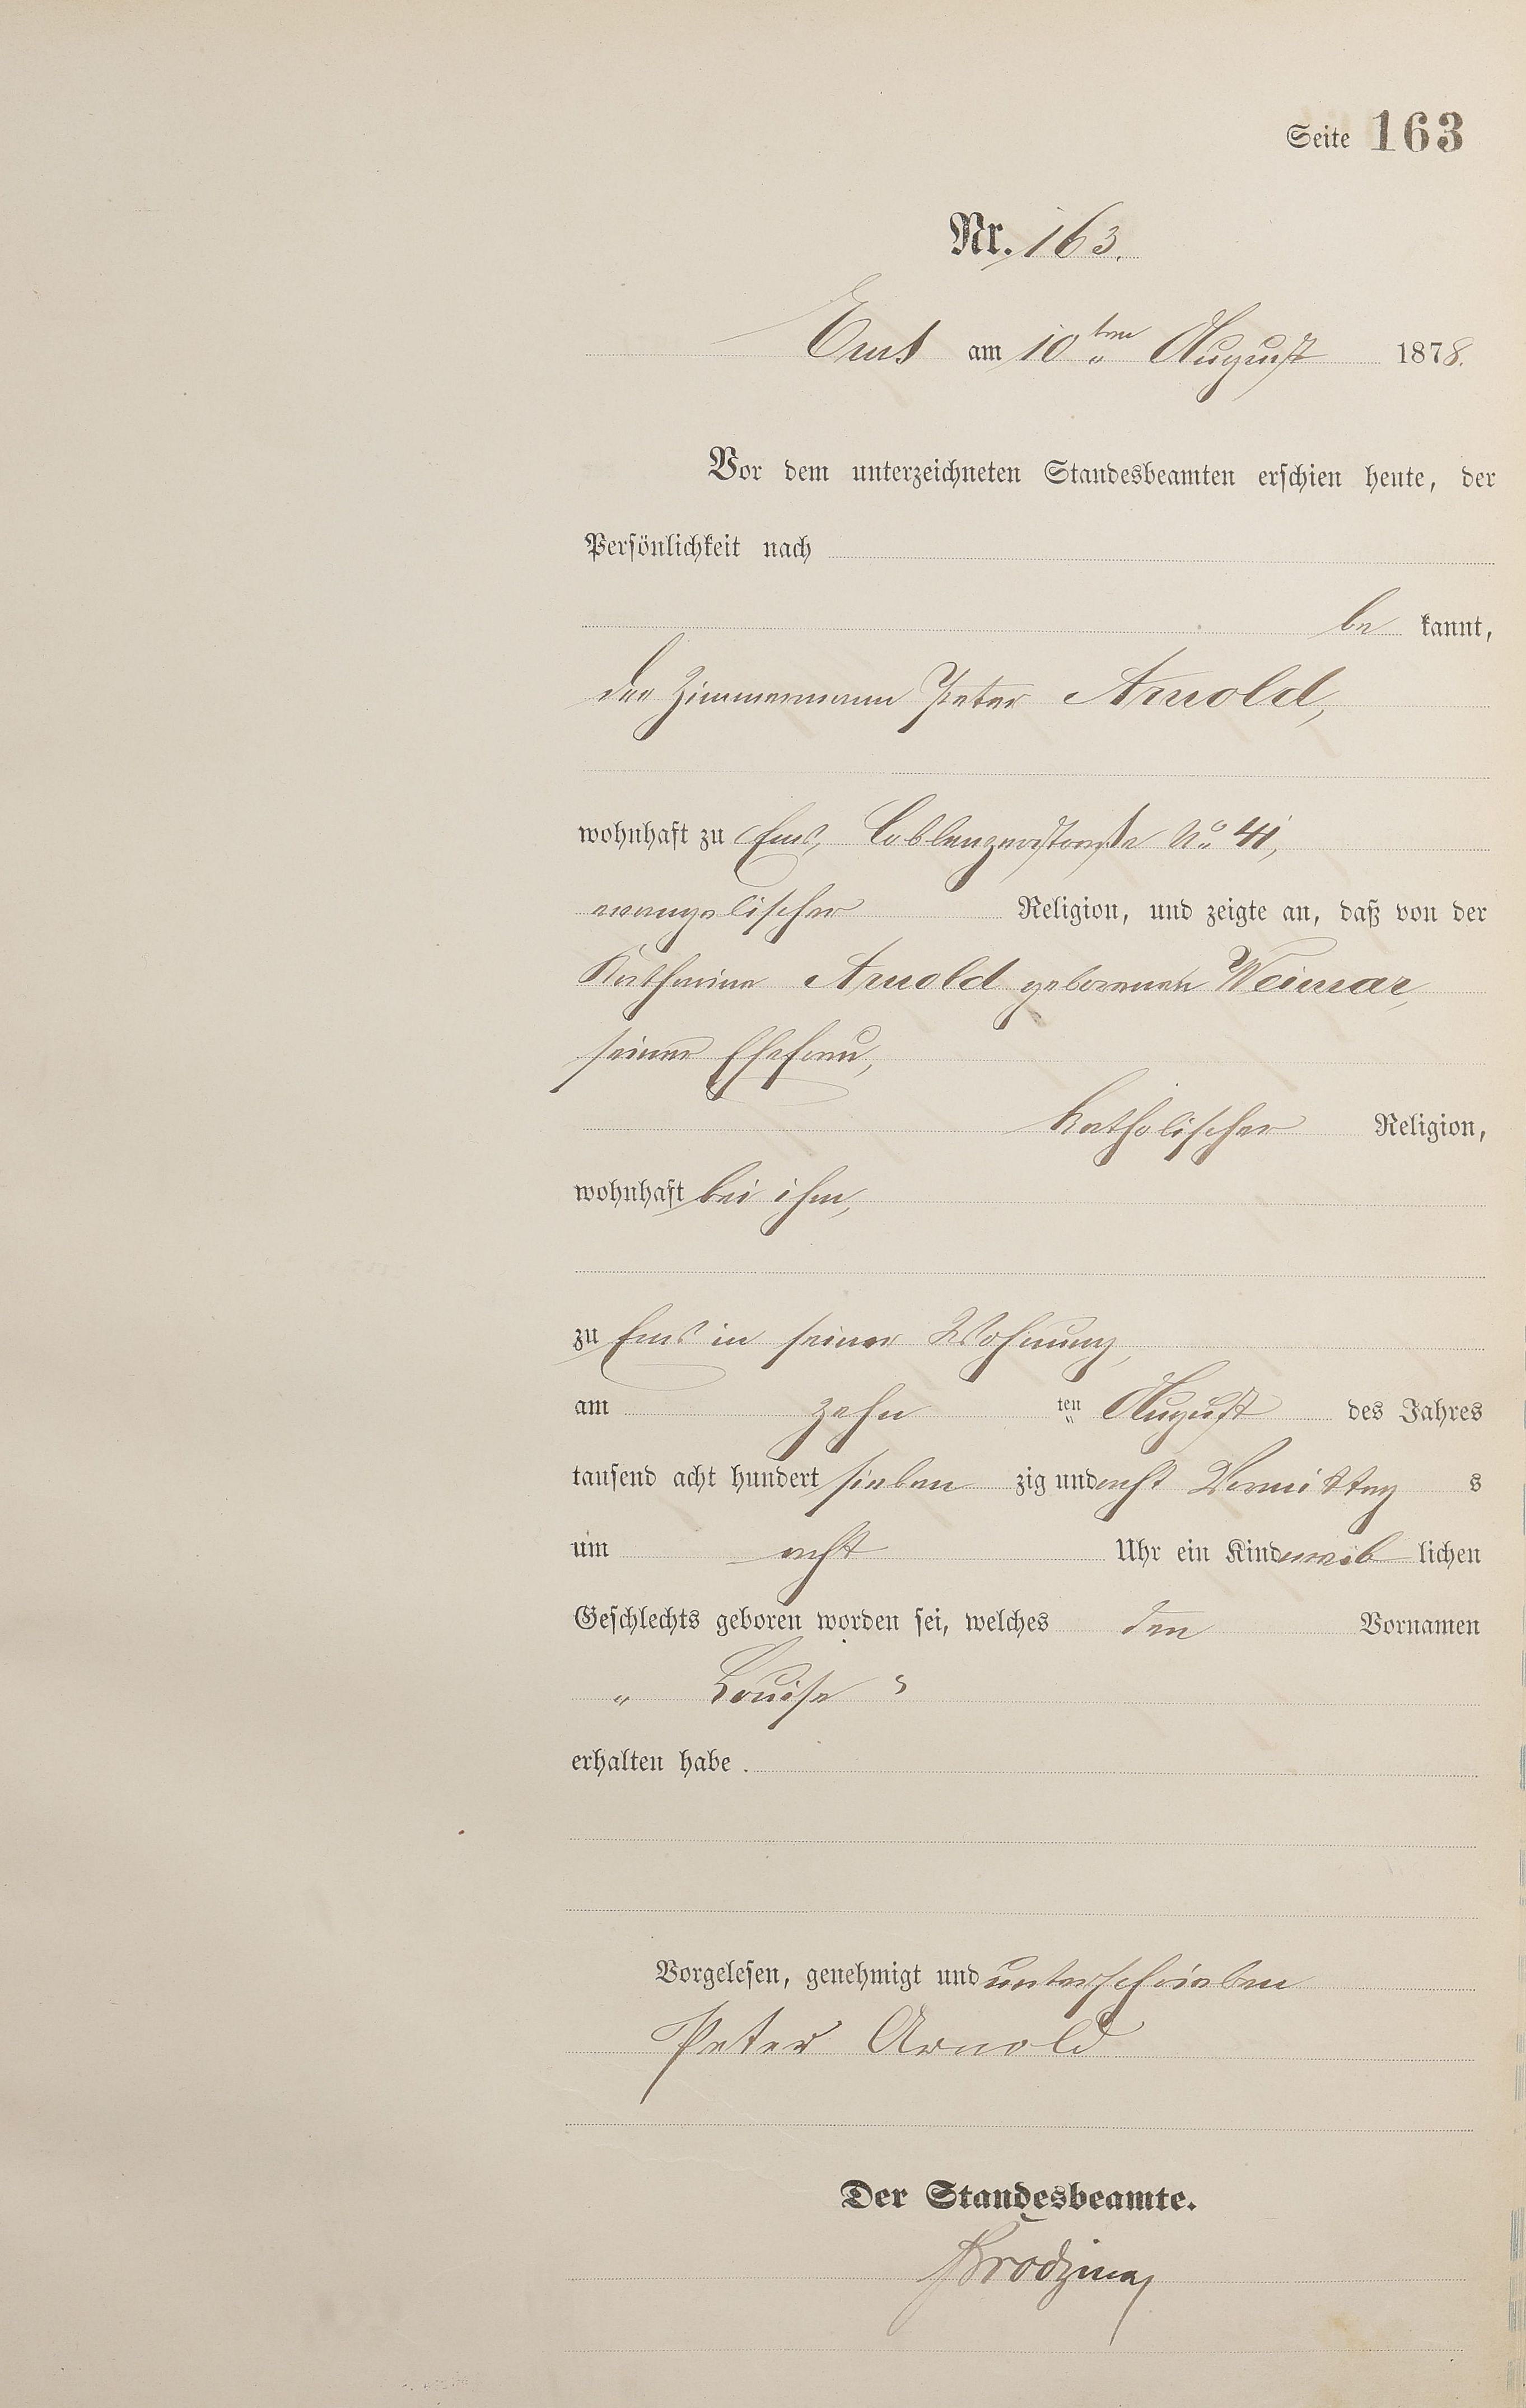 Seite 163
Nr. 163.
Ems am 10ten August 1878.
Vor dem unterzeichneten Standesbeamten erschien heute, der
Persönlichkeit nach
be kannt,
der Zimmermann Peter Arnold,
wohnhaft zu Ems, Coblenzerstraße No 41,
evangelischer Religion, und zeigte an, daß von der
Katharina Arnold geborenen Weimar,
seiner Ehefrau,
katholischer Religion,
wohnhaft bei ihm,
zu Ems in seiner Wohnung,
am zehn ten August des Jahres
tausend acht hundert sieben zig und acht Vormittag s
um acht Uhr ein Kind weib lichen
Geschlechts geboren worden sei, welches den Vornamen
„ Louise "
erhalten habe.
Vorgelesen, genehmigt und unterschrieben
Peter Arnold
Der Standesbeamte.